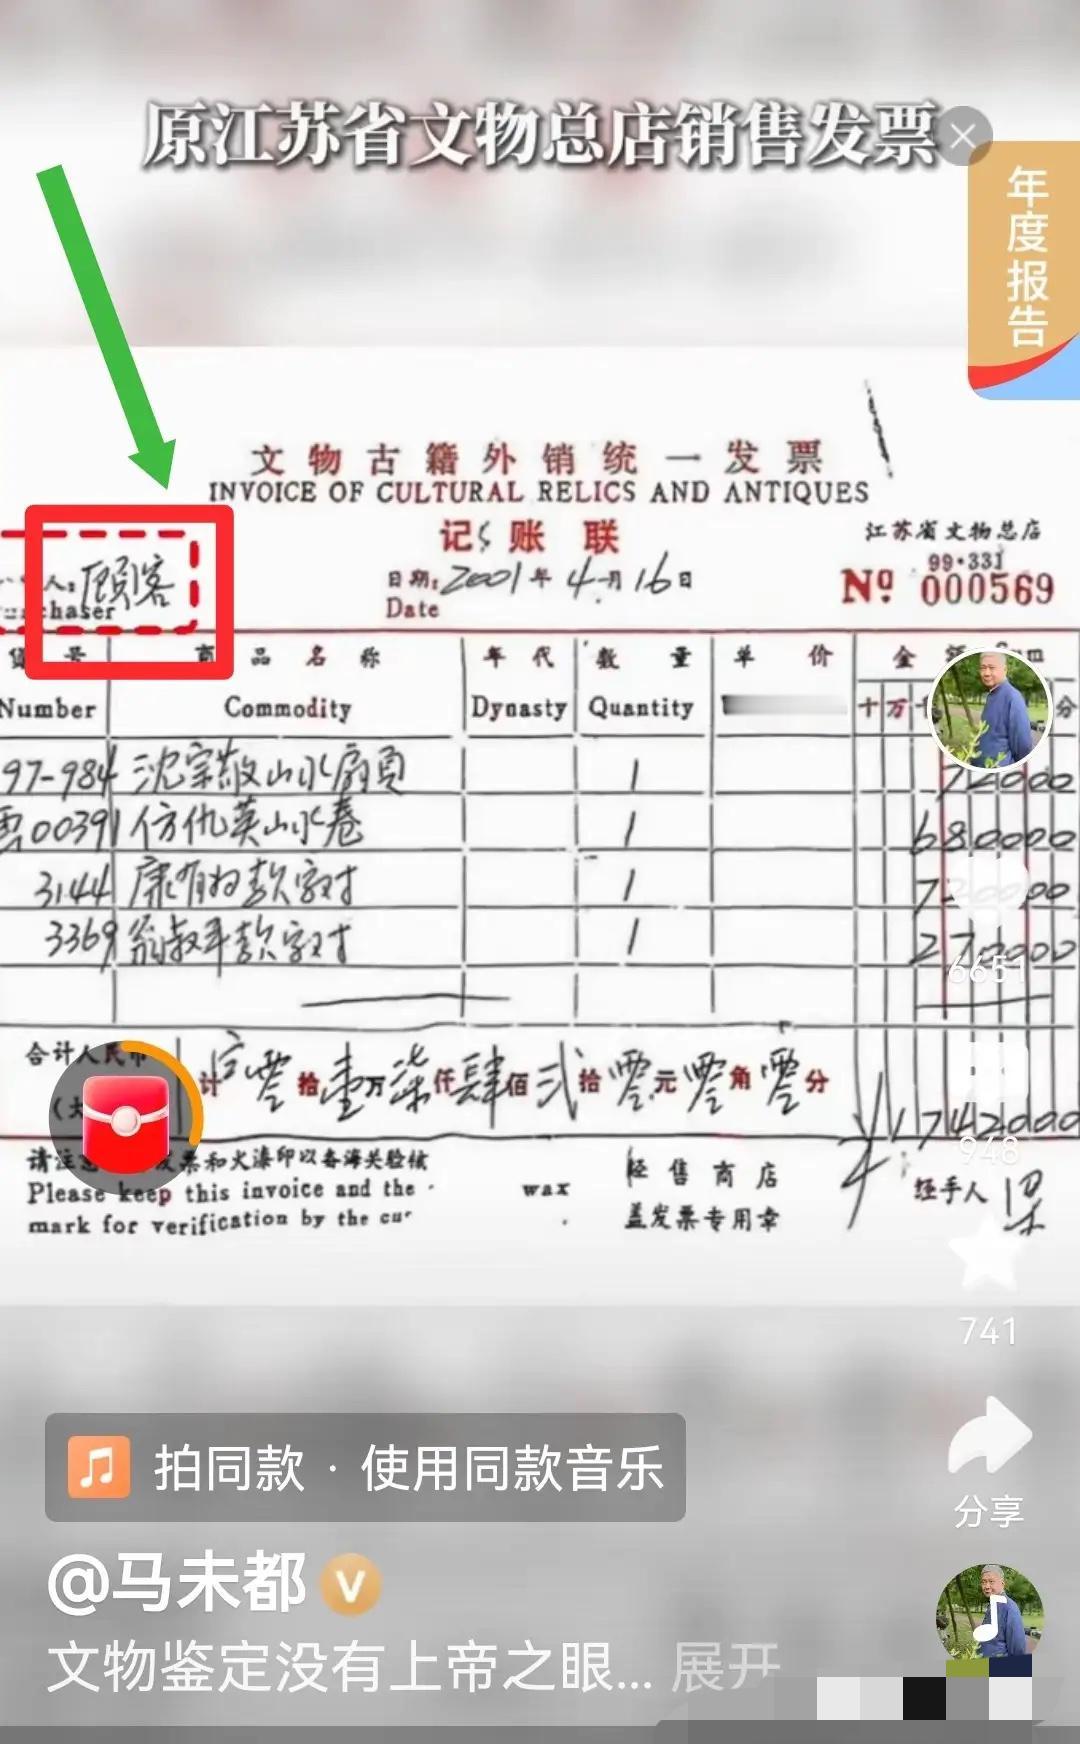 原江苏省文物总店销售发票
年度报告
文物古籍外销统一发票
INVOICE OF CULTURAL RELICS AND ANTIQUES
记账联
江苏省文物总店
99·331
人：顾客
chaser
日期：2001年4月16日
Date
Nº 000569
货号 商品名称 年代 数量 单价 金额 Sum
Number Commodity Dynasty Quantity 十万千 分
97-984 沈宗敬山水扇页 1 72000
00391 仿仇英山水卷 1 680000
3144 康有为款字对 1
3369 翁叔平款字对 1
6651
合计人民币 计 零拾壹万柒仟肆佰贰拾零元零角零分 1742000
948
请注 发票和火漆印以备海关验核
Please keep this invoice and the wax
mark for verification by the cu
经售商店
盖发票专用章
经手人
741
分享
拍同款 · 使用同款音乐
@马未都
文物鉴定没有上帝之眼... 展开